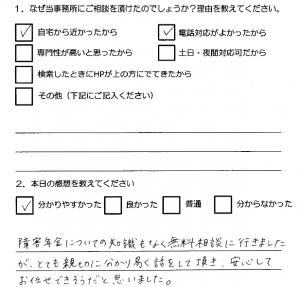 1．なぜ当事務所にご相談を頂けたのでしょうか？理由を教えてください。
✓ 自宅から近かったから ✓ 電話対応がよかったから
□ 専門性が高いと思ったから □ 土日・夜間対応可だから
□ 検索したときにHPが上の方にでてきたから
□ その他（下記にご記入ください）
2．本日の感想を教えてください
✓ 分かりやすかった □ 良かった □ 普通 □ 分からなかった
障害年金についての知識もなく無料相談に行きました
が、とても親切に分かり易く話をして頂き、安心して
お任せできそうだと思いました。